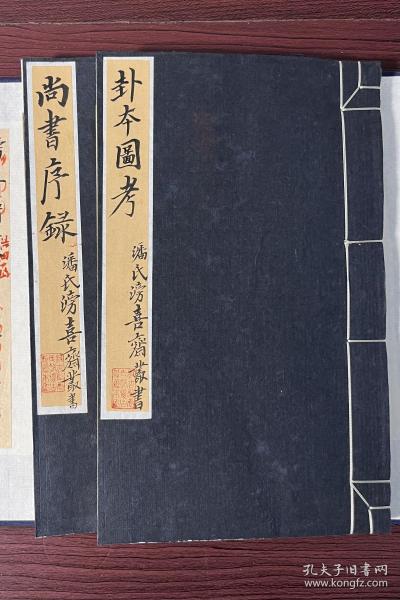 卦本圖考
潘氏滂喜齋叢書
尚書序録
潘氏滂喜齋叢書
孔夫子旧书网
www.kongfz.com